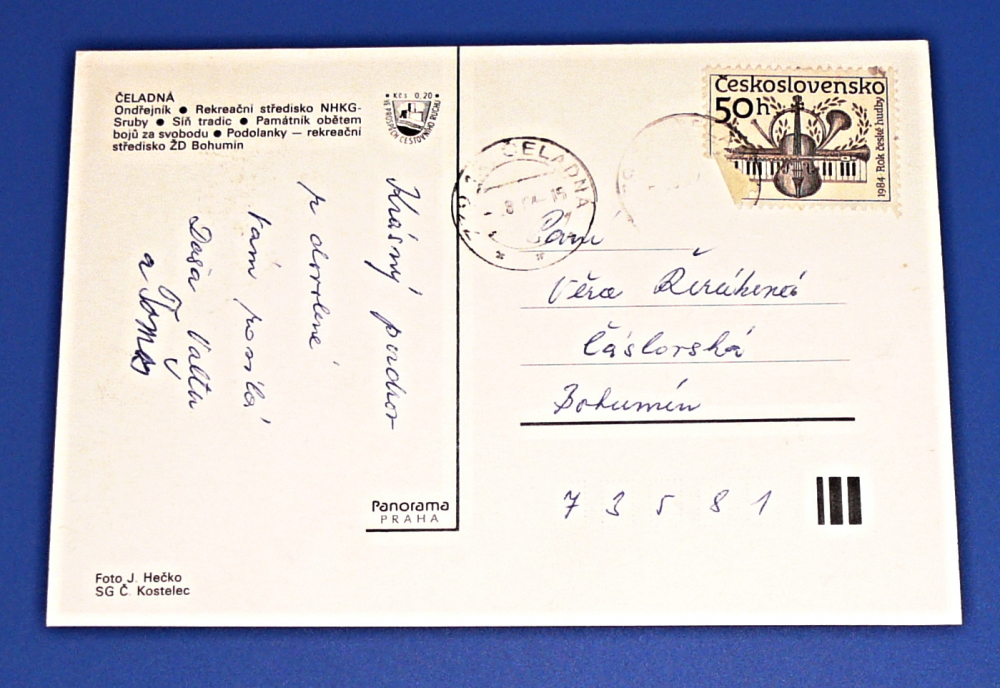 ČELADNÁ
Ondřejník ● Rekreační středisko NHKG-
Sruby ● Síň tradic ● Památník obětem
bojů za svobodu ● Podolanky — rekreační
středisko ŽD Bohumín
Kčs 0,20
VE PROSPĚCH CESTOVNÍHO RUCHU
Krásný pozdrav
z dovolené
Vám posílá
Dáša Valtr
a Tomáš
Panorama
PRAHA
Foto J. Hečko
SG Č. Kostelec
ČELADNÁ
Československo
50h
1984 Rok české hudby
Paní
Věra
Čáslavská
Bohumín
73581